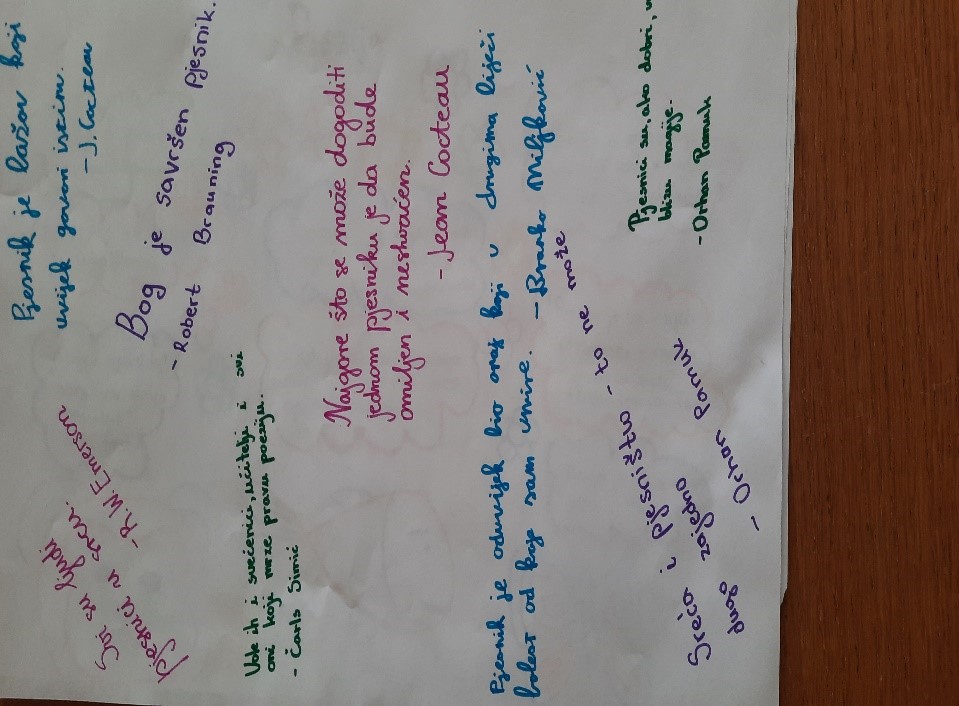 Pjesnik je lažov koji
uvijek govori istinu.
- J. Cocteau
Bog je savršen pjesnik.
- Robert Brauning
Svi su ljudi
pjesnici u srcu.
- R.W. Emerson
Vole ih i svećenici, učitelji i svi
oni koji mrze pravu poeziju.
- Čarls Simić
Najgore što se može dogoditi
jednom pjesniku je da bude
omiljen i neshvaćen.
- Jean Cocteau
Pjesnik je oduvijek bio onaj koji u drugima liječi
bolest od koje sam umire. - Branko Miljković
Sreća i pjesništvo - to ne može
dugo zajedno
- Orhan Pamuk
Pjesnici su, ako dobri,
blizu magije.
- Orhan Pamuk